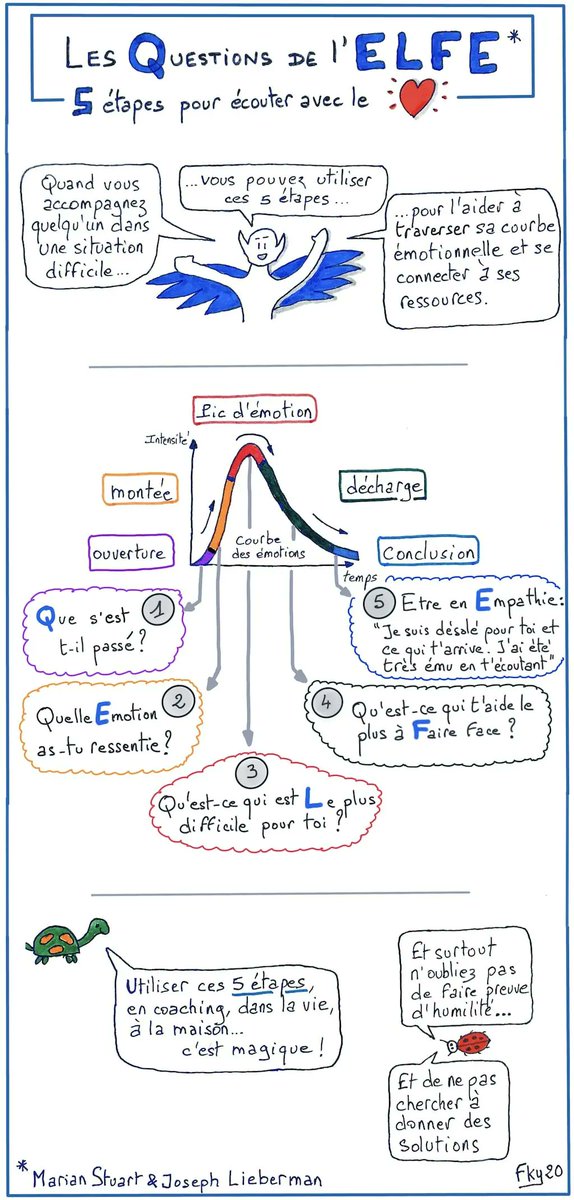 Les Questions de l'ELFE*
5 étapes pour écouter avec le
Quand vous
accompagnez
quelqu'un dans
une situation
difficile...
...vous pouvez utiliser
ces 5 étapes...
...pour l'aider à
traverser sa courbe
émotionnelle et se
connecter à ses
ressources.
Pic d'émotion
Intensité
montée
décharge
ouverture
Courbe
des émotions
Conclusion
temps
1
Que s'est
t-il passé?
5 Etre en Empathie:
"Je suis désolé pour toi et
ce qui t'arrive. J'ai été
très ému en t'écoutant"
2
Quelle Emotion
as-tu ressentie?
4 Qu'est-ce qui t'aide le
plus à Faire Face?
3
Qu'est-ce qui est Le plus
difficile pour toi?
Utiliser ces 5 étapes,
en coaching, dans la vie,
à la maison...
c'est magique!
Et surtout
n'oubliez pas
de faire preuve
d'humilité...
Et de ne pas
chercher à
donner des
solutions
*Marian Stuart & Joseph Lieberman
Fky20